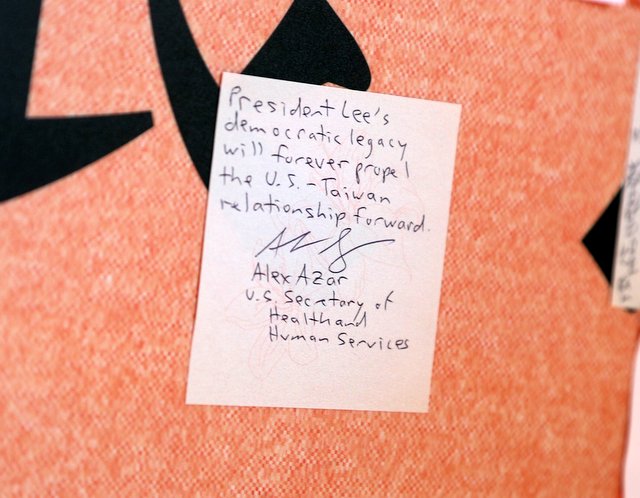 President Lee's
democratic legacy
will forever propel
the U.S.-Taiwan
relationship forward.
Alex Azar
U.S. Secretary of
Health and
Human Services